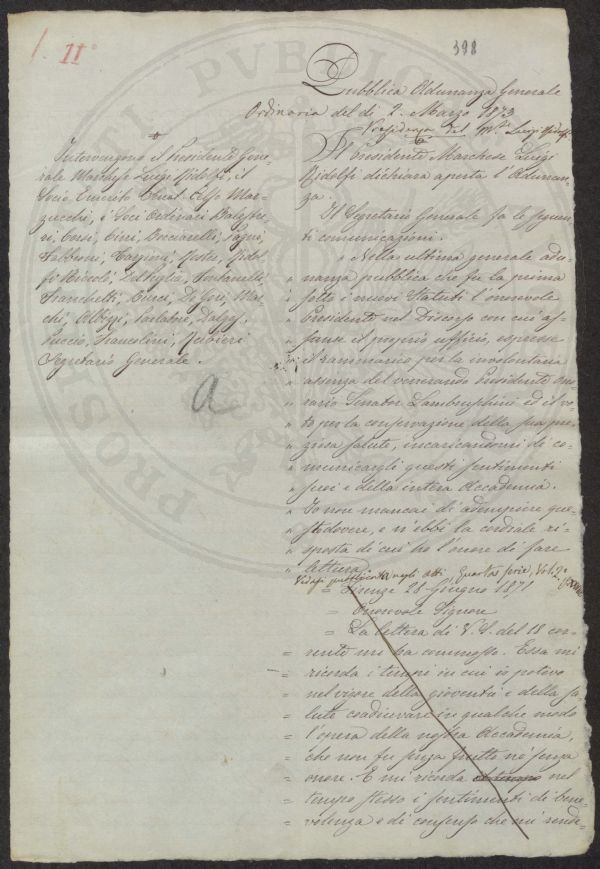 1. II°
398
Pubblica Adunanza Generale
Ordinaria del dì 2. Marzo 1873
Presidenza del M.se Luigi Ridolfi
Intervengono il Presidente Gene-
rale Marchese Luigi Ridolfi; il
Socio Emerito Cel. Celso Mar-
zucchi, i Soci Ordinari
ri, Corsi, Cini, Pagni,
Fabbroni, Targioni, Ridol-
fi Niccolò, Del Puglia, Fontanelli,
Franchetti, Cucci, Di Gori, Mar-
chi, Albizzi, Parlatore, Dalgas,
Puccio, Francolini,
Segretario Generale.
a
Il Presidente Marchese Luigi
Ridolfi dichiara aperta l'Adunan-
za.
Il Segretario Generale fa le seguen-
ti comunicazioni.
" Nella ultima generale adu-
" nanza pubblica che fu la prima
" sotto i nuovi Statuti l'onorevole
" Presidente nel Discorso con cui as-
" sunse il proprio ufficio, espresse
" il rammarico per la involontaria
" assenza del venerando Presidente ono-
" rario Senator Lambruschini ed il vo-
" to per la conservazione della sua pre-
" ziosa salute, incaricandomi di co-
" municargli questi sentimenti
" suoi e della intera Accademia.
" Io non mancai di adempiere que-
" sto dovere, e n'ebbi la cordiale ri-
" sposta di cui ho l'onore di fare
" lettura
Vedasi negli atti, Quarta serie, Vol. 2°
= Firenze 28 Giugno 1871
= Onorevole Signore
= La lettera di V. S. del 18 cor-
= rente mi ha commosso. Essa mi
= ricorda i tempi in cui io potevo
= nel vigore della gioventù e della sa-
= lute coadiuvare in qualche modo
= l'opera della nostra Accademia,
= che non fu senza frutto nè senza
= onore. E mi ricorda nel
= tempo stesso i sentimenti di bene-
= volenza e di consenso che mi rende-